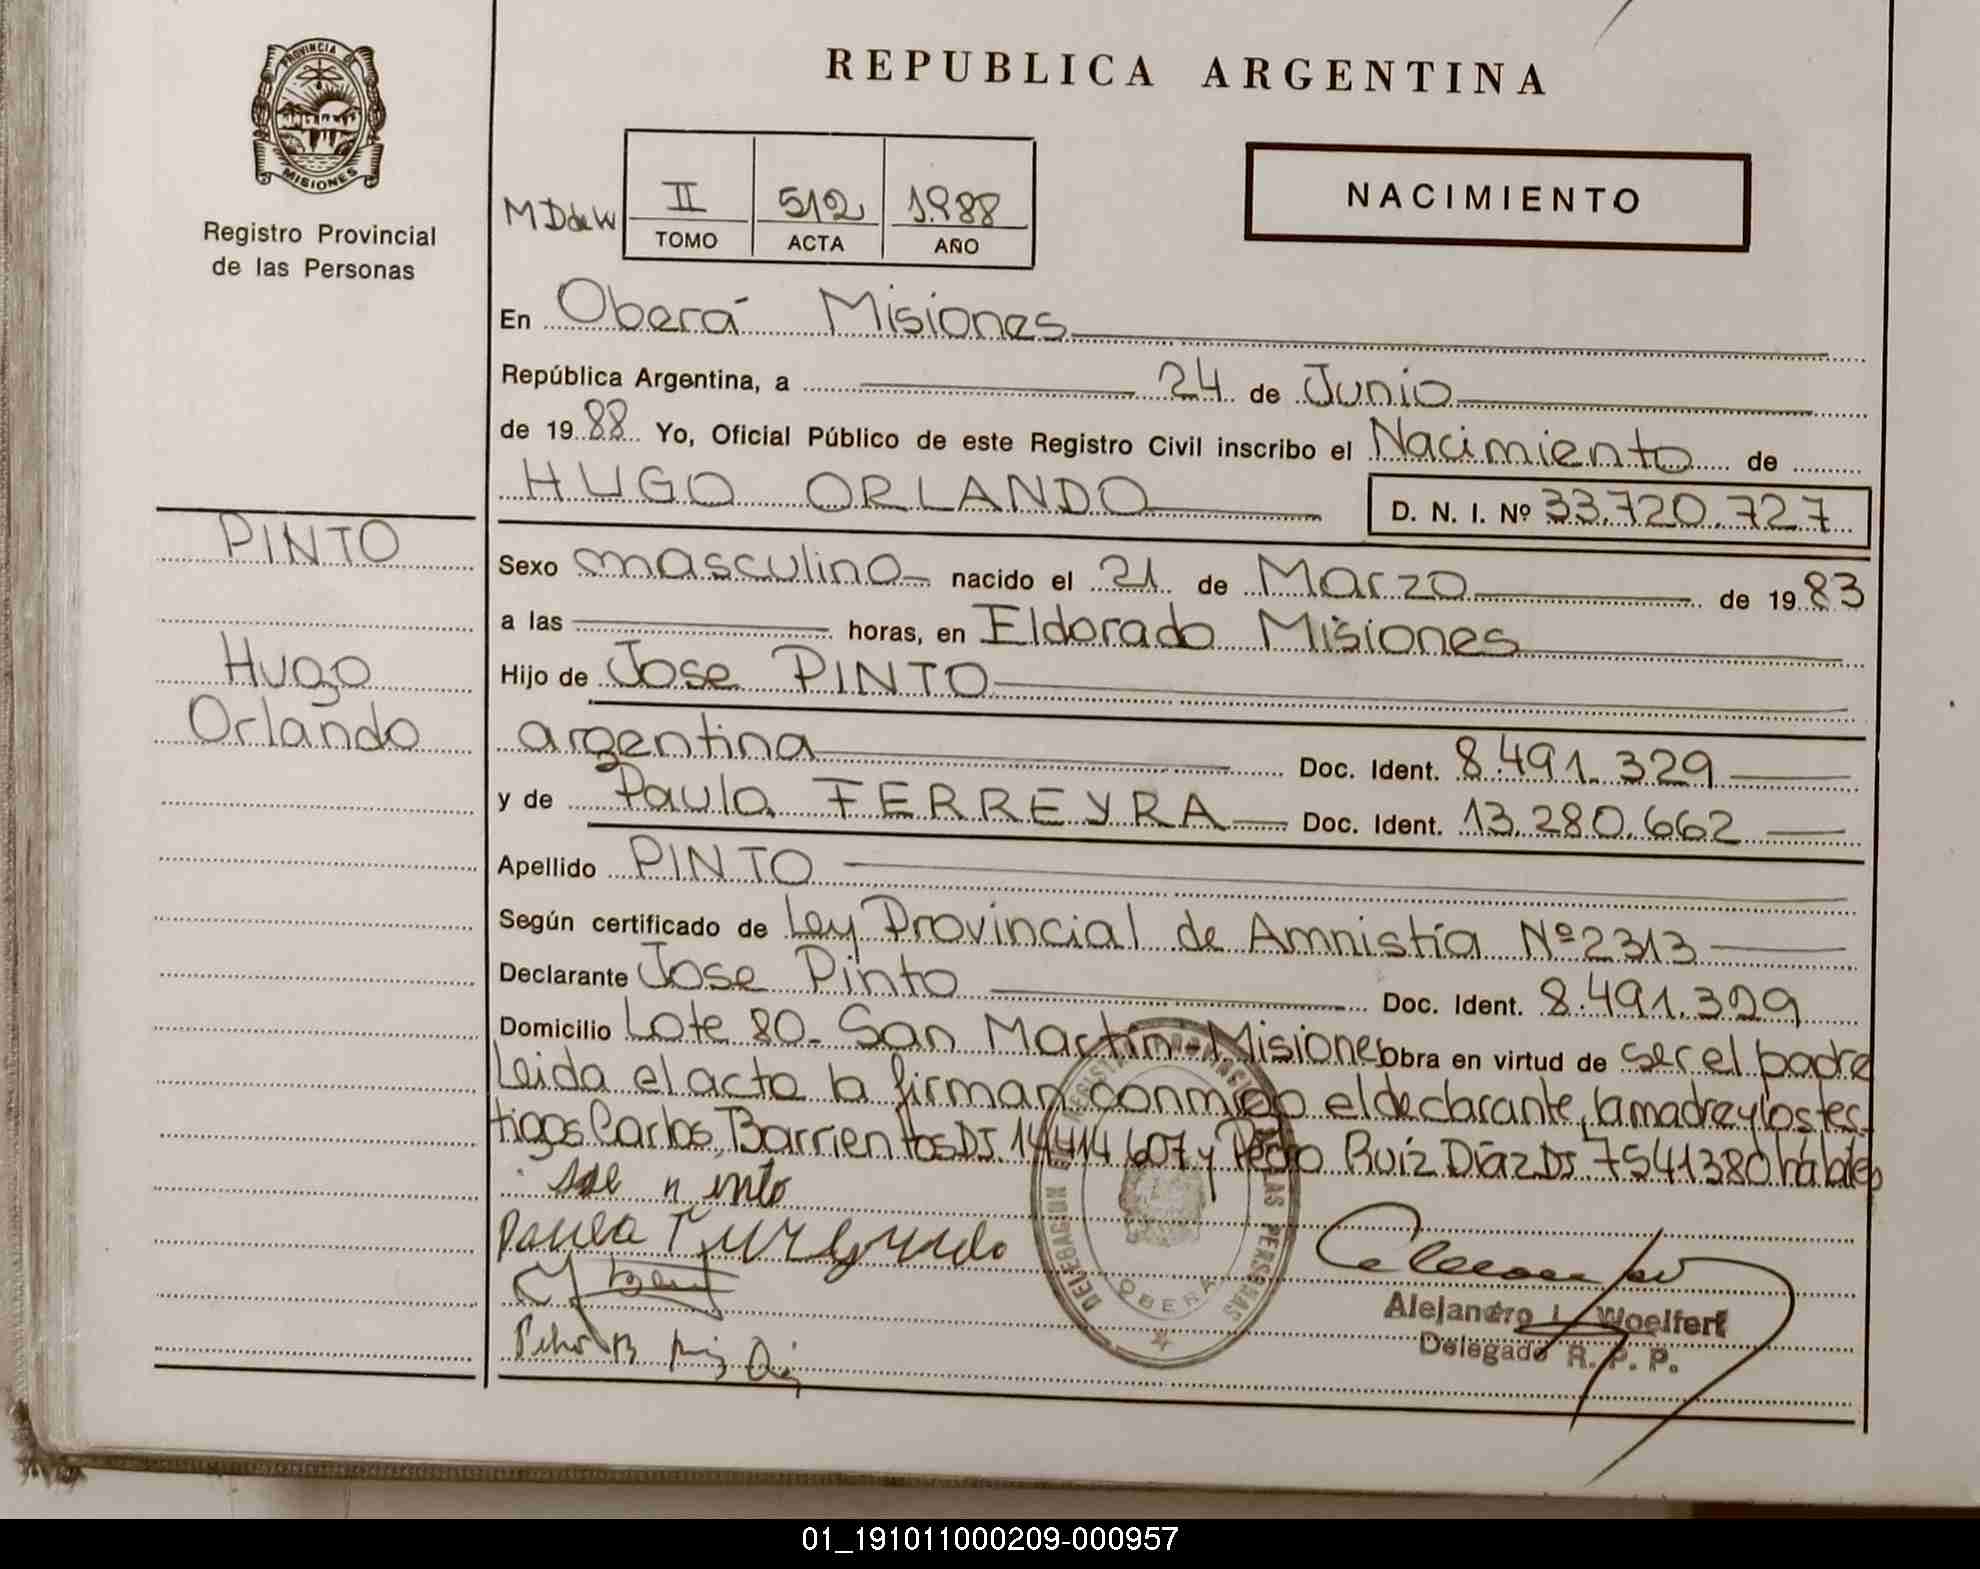 PROVINCIA DE
MISIONES
Registro Provincial
de las Personas
REPUBLICA ARGENTINA
NACIMIENTO
MDdeW
II 512 1988
TOMO ACTA AÑO
En Oberá Misiones
República Argentina, a 24 de Junio
de 1988 Yo, Oficial Público de este Registro Civil inscribo el Nacimiento de
HUGO ORLANDO D. N. I. Nº 33.720.727
PINTO
Hugo
Orlando
Sexo masculino nacido el 21 de Marzo de 1983
a las horas, en Eldorado Misiones
Hijo de Jose PINTO
argentina Doc. Ident. 8.491.329
y de Paula FERREYRA Doc. Ident. 13.280.662
Apellido PINTO
Según certificado de Ley Provincial de Amnistía Nº 2313
Declarante Jose Pinto Doc. Ident. 8.491.329
Domicilio Lote 80- San Martin - Misiones Obra en virtud de ser el padre
Leida el acta la firman conmigo el declarante, la madre y los tes-
tigos Carlos Barrientos DJ. 14414607 y Pedro Ruiz Díaz DJ. 7541380 hábiles
Paula
DELEGACION REGISTRO PROVINCIAL DE LAS PERSONAS
OBERA
Alejandro L. Woelfert
Delegado R. P. P.
01_191011000209-000957